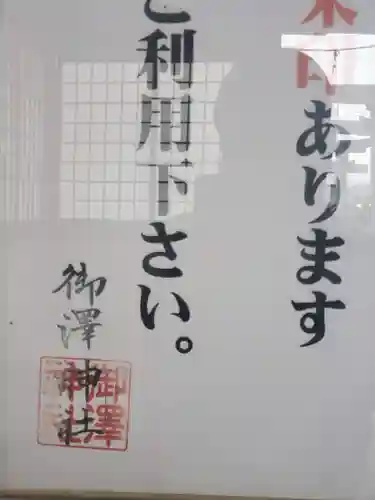 朱印あります
ご利用下さい。
御澤神社
御澤神社